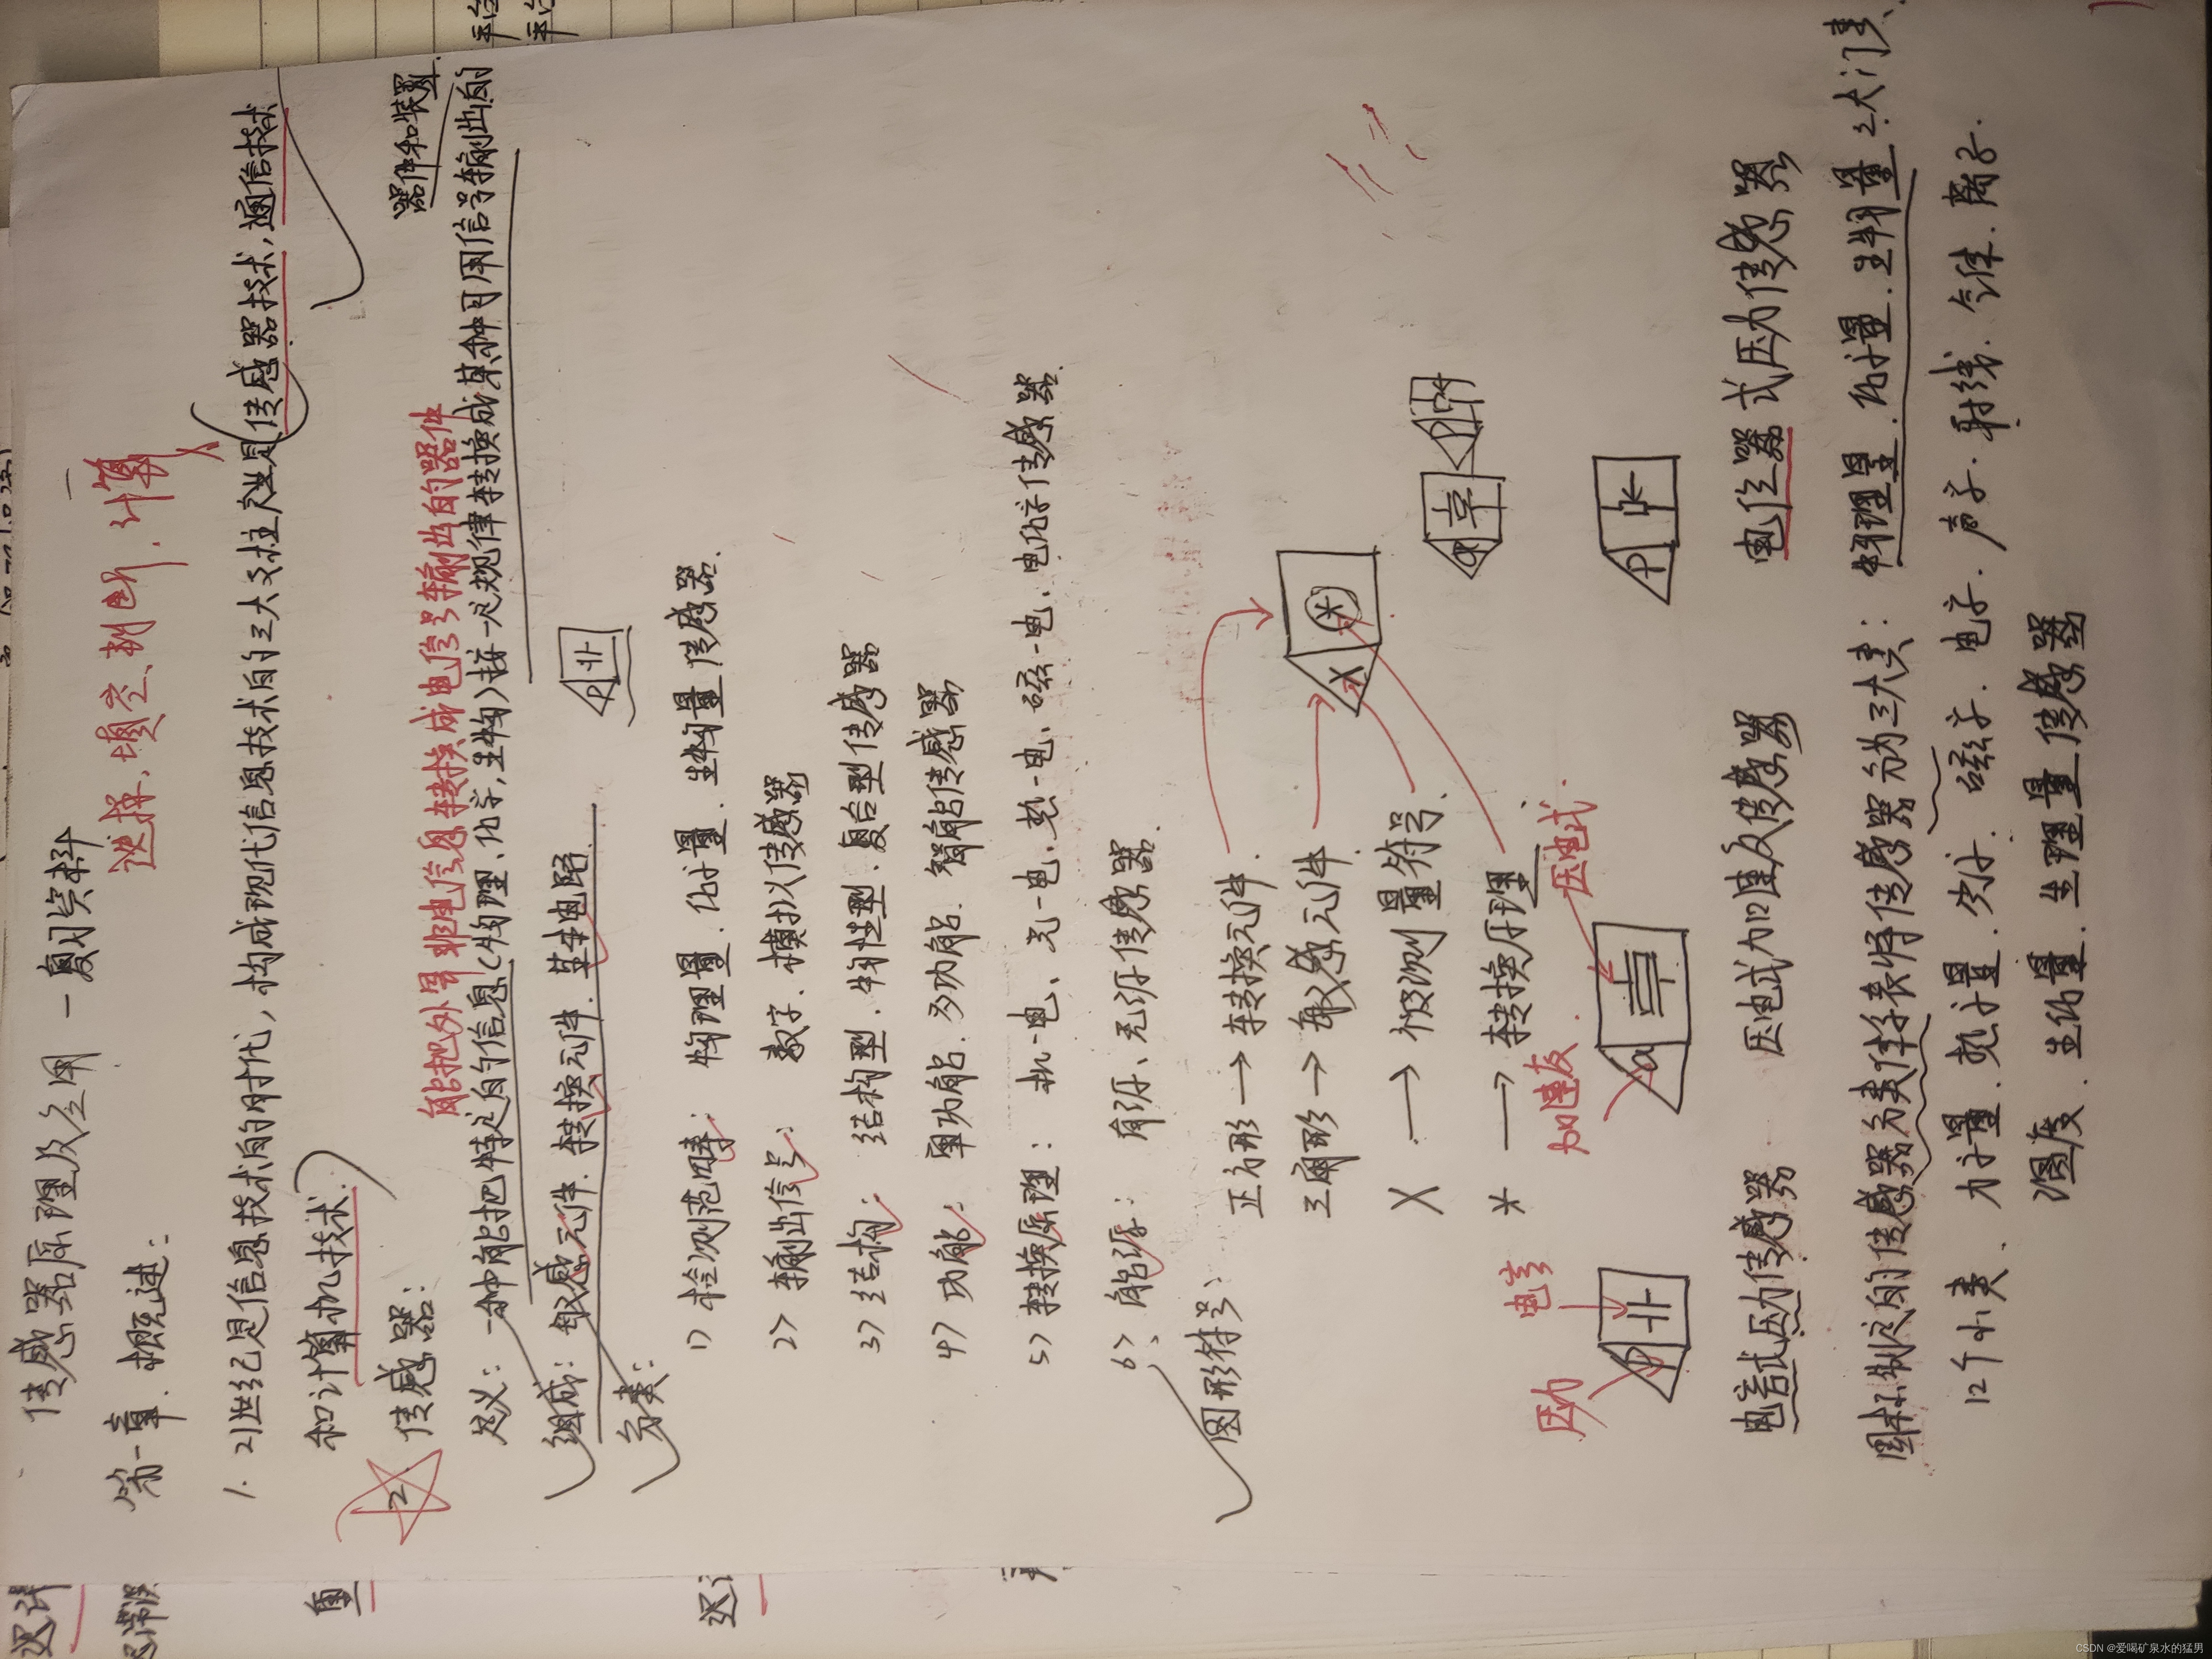 传感器原理及应用 — 复习资料
第一章. 概述:
选择、填空、判断、计算
1. 21世纪是信息技术的时代, 构成现代信息技术的三大支柱产业是传感器技术, 通信技术
和计算机技术.
2 传感器:
能把外界非电信息转换成电信号输出的器件
器件和装置.
定义: 一种能把特定的信息(物理、化学, 生物)按一定规律转换成某种可用信号输出的
组成: 敏感元件. 转换元件. 基本电路.
P
分类:
1) 检测范畴: 物理量. 化学量. 生物量传感器.
2) 输出信号: 数字. 模拟传感器
3) 结构: 结构型. 物性型. 复合型传感器
4) 功能: 单功能. 多功能. 智能传感器
5) 转换原理: 机-电、光-电、热-电、磁-电、电化学传感器.
6) 能源: 有源、无源传感器.
图形符号:
正方形 → 转换元件.
三角形 → 敏感元件.
X → 被测量符号.
* → 转换原理
X *
P
压力 电容
加速度. 压电式.
P
a
P
电容式压力传感器 压电式加速度传感器 电位器式压力传感器
国标制定的传感器分类体系表将传感器分为三大类: 物理量. 化学量. 生物量 三大门类、
12个小类、 力学量. 热学量. 光学. 磁学. 电学. 声学. 射线. 气体. 离子.
湿度. 生化量. 生理量传感器
CSDN @爱喝矿泉水的猛男